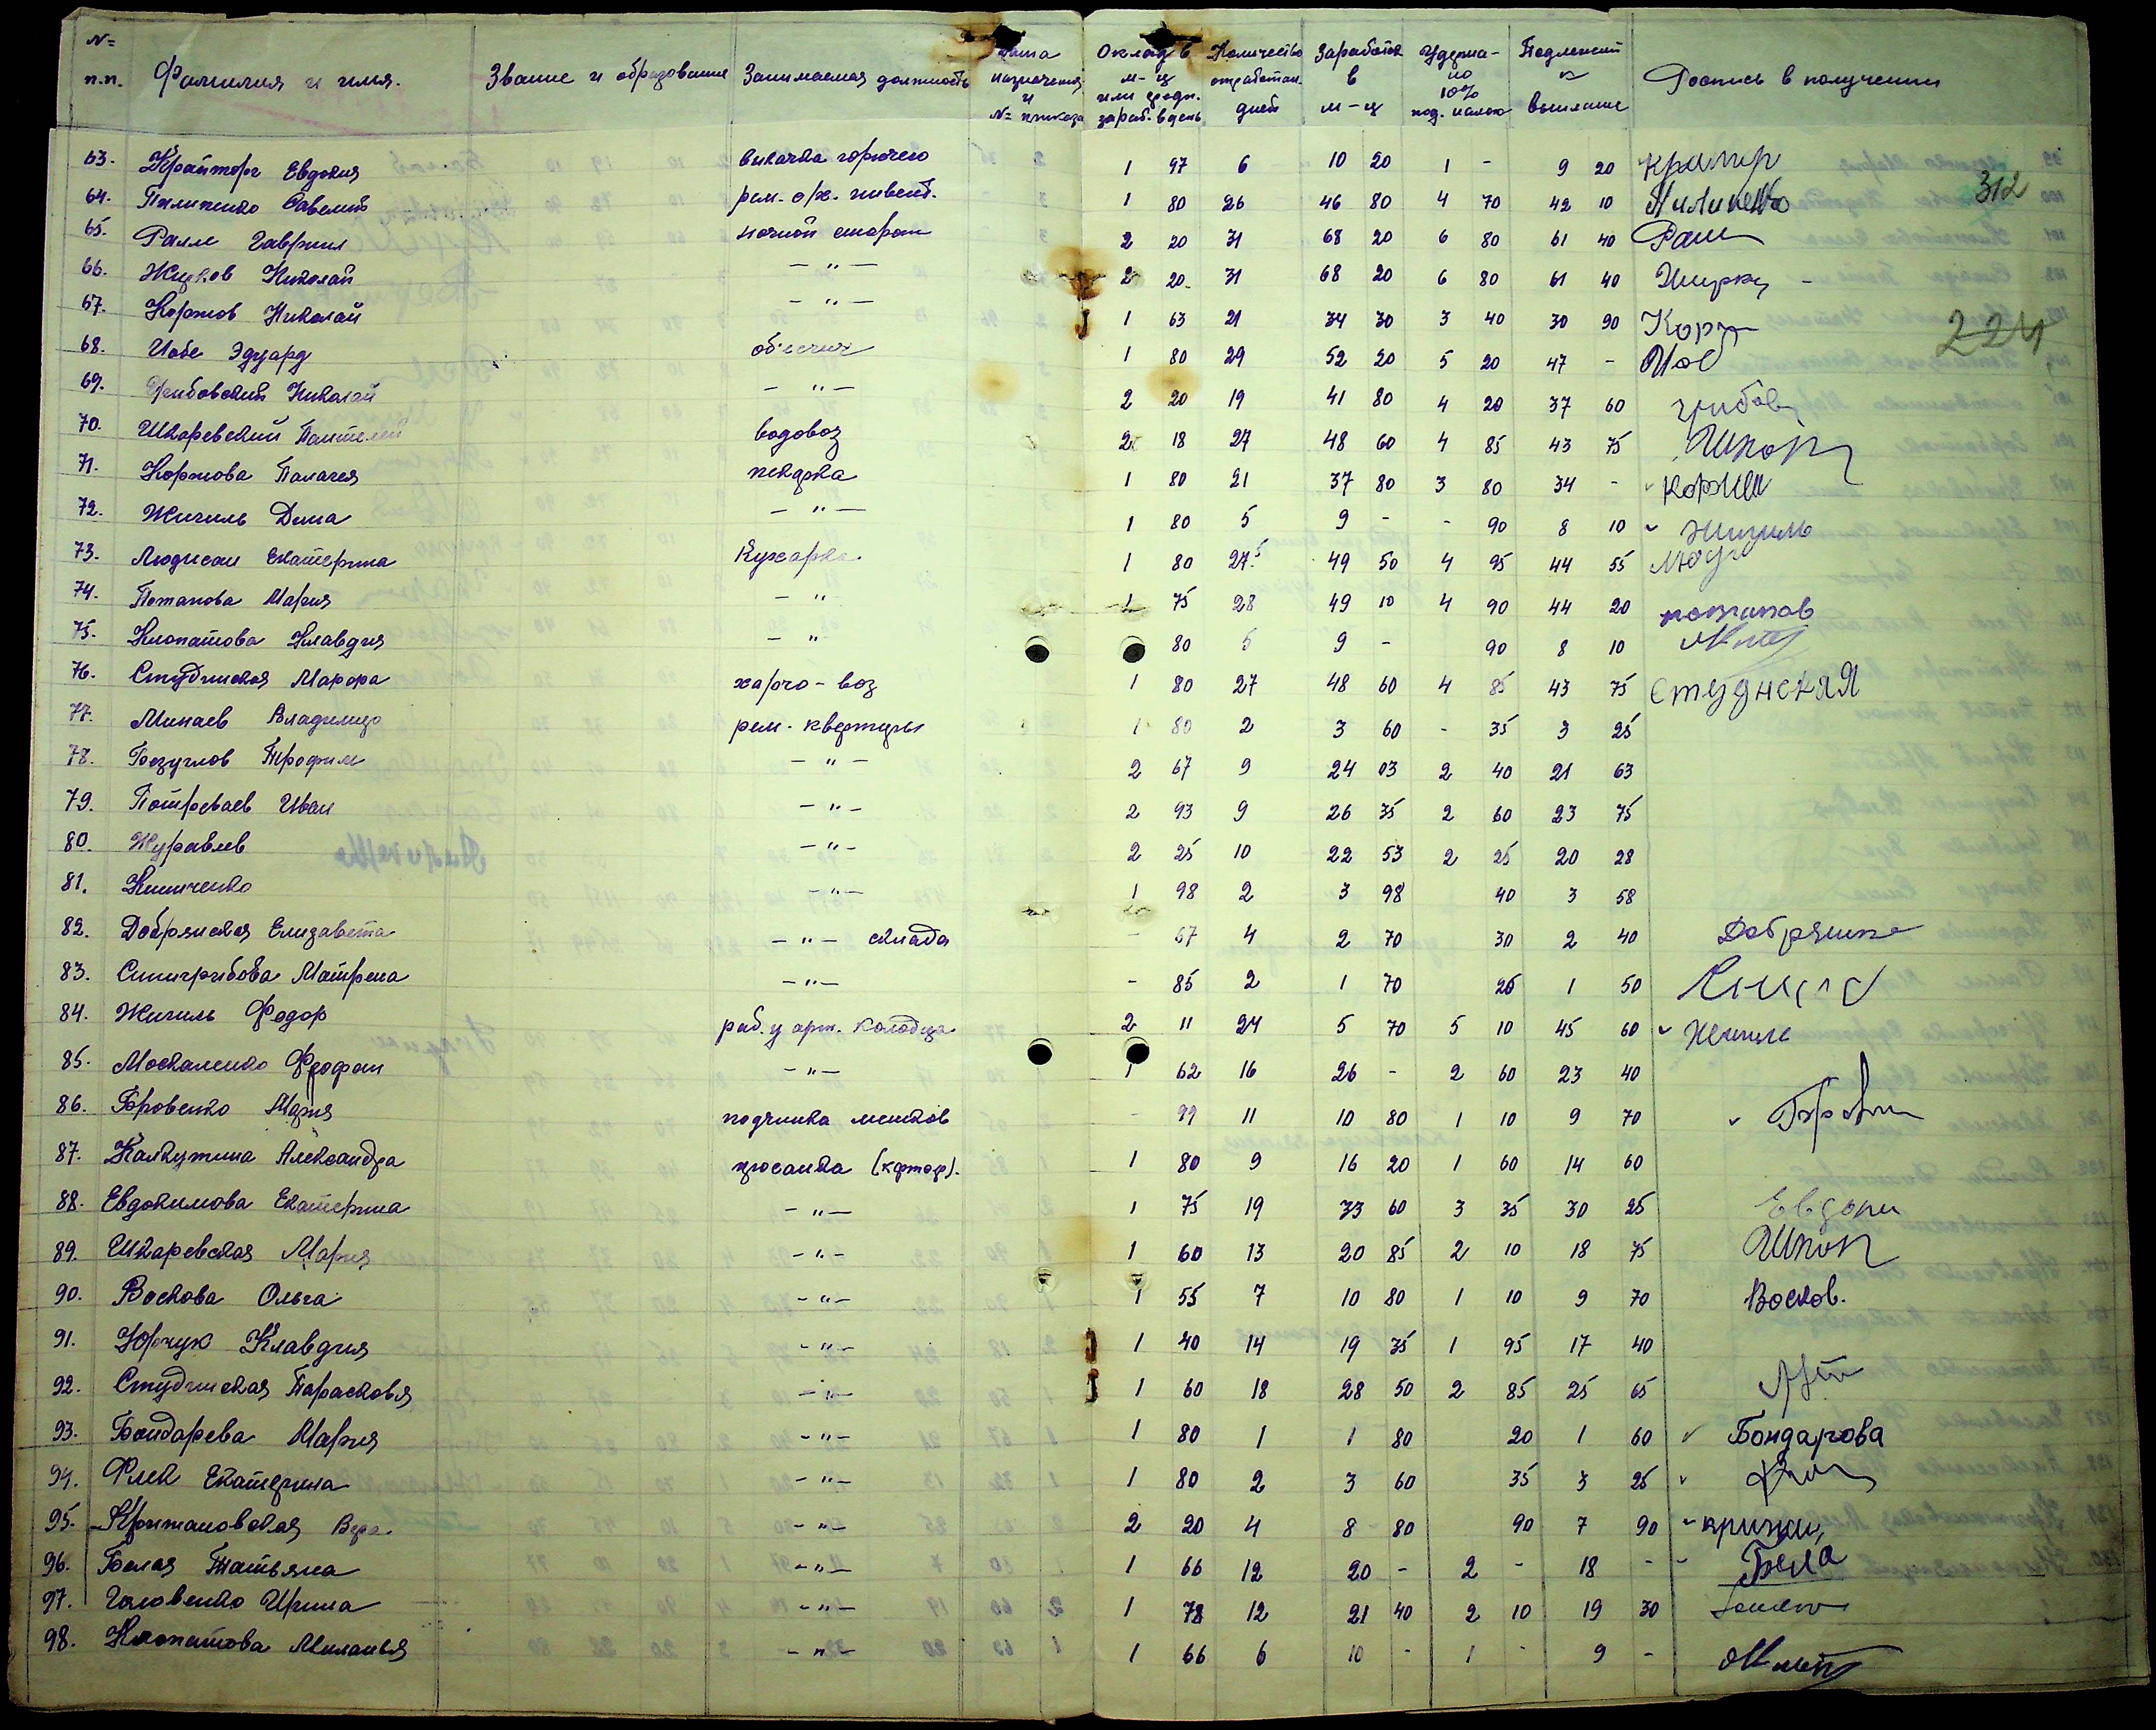 № п.п. Фамилия и имя. Звание и образование Занимаемая должность Дата назначения и № приказа Оклад в м-ц или средн. зараб. в день Количество отработан. дней Заработок в м-ц Удержано 10% под. налог Подлежит к выплате Роспись в получении
63. Крайторг Евдокия выкачка горючего 1 97 6 10 20 1 - 9 20
64. Пилипенко Савелий рем. с/х. инвент. 1 80 26 46 80 4 70 42 10 Пилипенко 312
65. Ралле Гавриил ночной сторож 2 20 31 68 20 6 80 61 40
66. Жирков Николай - " - 2 20 31 68 20 6 80 61 40 Жирку
67. Коржов Николай - " - 1 63 21 34 30 3 40 30 90 Корж
68. Иобе Эдуард объездчик 1 80 29 52 20 5 20 47 - Иоб 224
69. Грибовский Николай - " - 2 20 19 41 80 4 20 37 60 Грибов
70. Шкаревский Пантелей водовоз 2 18 27 48 60 4 85 43 75 Шкар
71. Коржова Палагея пекарка 1 80 21 37 80 3 80 34 - Коржов
72. Жигиль Дина - " - 1 80 5 9 - - 90 8 10 Жигиль
73. Людисаи Екатерина Кухарка 1 80 27.5 49 50 4 95 44 55 Люд
74. Потапова Мария - " 1 75 28 49 10 4 90 44 20 потапов
75. Клопатова Клавдия - " 80 5 9 - 90 8 10
76. Студинская Марфа харчо-воз 1 80 27 48 60 4 85 43 75 Студнская
77. Минаев Владимир рем. квартиры 1 80 2 3 60 - 35 3 25
78. Безуглов Трофим - " - 2 67 9 24 03 2 40 21 63
79. Потреваев Иван - " - 2 93 9 26 35 2 60 23 75
80. Журавлев - " - 2 25 10 22 53 2 25 20 28
81. Климченко - " - 1 98 2 3 98 40 3 58
82. Добрянская Елизавета - " - склада - 67 4 2 70 30 2 40 Добрянска
83. Синигрибова Матрена - " - - 85 2 1 70 25 1 50
84. Жигиль Федор раб. у арт. колодца 2 11 24 5 70 5 10 45 60 Жигиль
85. Москаленко Феофан - " - 1 62 16 26 - 2 60 23 40
86. Бровенко Мария подчинка мешков - 99 11 10 80 1 10 9 70 Бровен
87. Калкутина Александра прополка (картоф). 1 80 9 16 20 1 60 14 60
88. Евдокимова Екатерина - " - 1 75 19 33 60 3 35 30 25 Евдоки
89. Шкаревская Мария - " - 1 60 13 20 85 2 10 18 75 Шкар
90. Воскова Ольга - " - 1 55 7 10 80 1 10 9 70 Восков.
91. Юрчук Клавдия - " - 1 40 14 19 35 1 95 17 40
92. Студинская Парасковья - " - 1 60 18 28 50 2 85 25 65
93. Бондарева Мария - " - 1 80 1 1 80 20 1 60 Бондарова
94. Флек Екатерина - " - 1 80 2 3 60 35 3 25
95. Крижановская Вера - " - 2 20 4 8 80 90 7 90 крижан
96. Белая Татьяна - " - 1 66 12 20 - 2 - 18 - Бела
97. Головенко Ирина - " - 1 78 12 21 40 2 10 19 30
98. Клопатова Миланья - " - 1 66 6 10 - 1 - 9 -